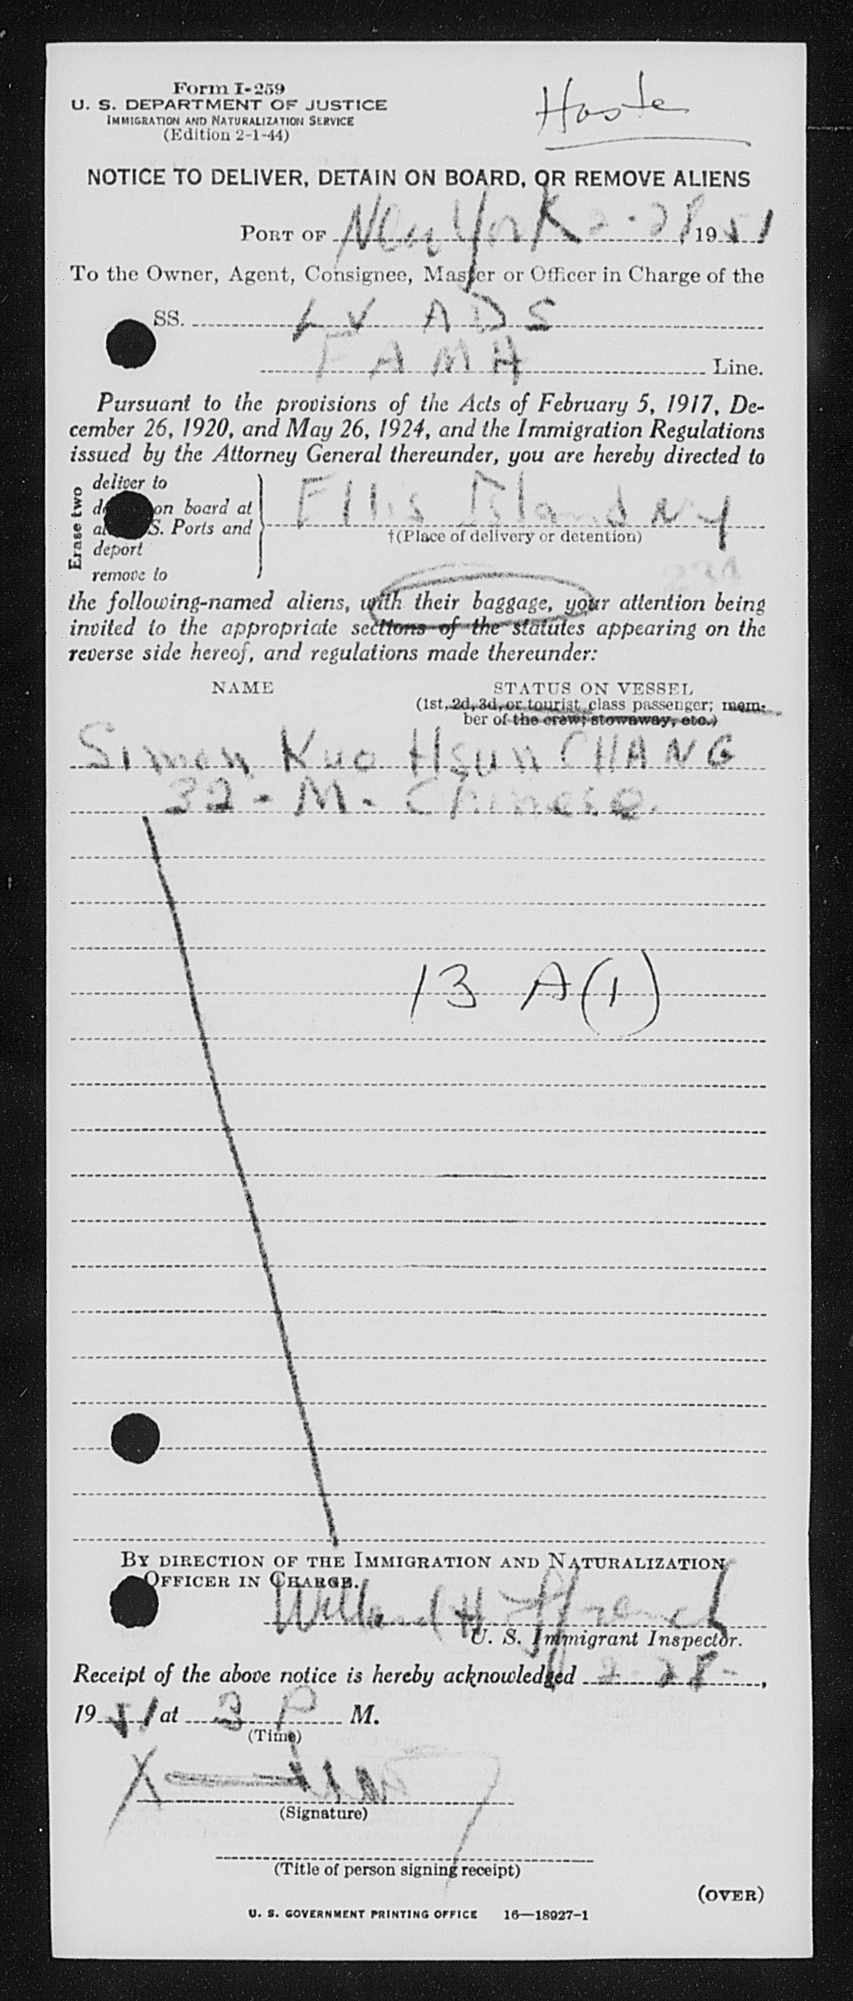 Form I-259
U. S. DEPARTMENT OF JUSTICE
IMMIGRATION AND NATURALIZATION SERVICE
(Edition 2-1-44)
NOTICE TO DELIVER, DETAIN ON BOARD, OR REMOVE ALIENS
PORT OF New York 2-28 1951
To the Owner, Agent, Consignee, Master or Officer in Charge of the
SS. LV ADS
FAMA Line.
Pursuant to the provisions of the Acts of February 5, 1917, De-
cember 26, 1920, and May 26, 1924, and the Immigration Regulations
issued by the Attorney General thereunder, you are hereby directed to
Erase two
deliver to
on board at
S. Ports and
deport
remove to
Ellis Island NY
†(Place of delivery or detention)
the following-named aliens, with their baggage, your attention being
invited to the appropriate sections of the statutes appearing on the
reverse side hereof, and regulations made thereunder:
NAME STATUS ON VESSEL
(1st, 2d, 3d, or tourist class passenger; mem-
ber of the crew; stowaway, etc.)
Simon Kuo Hsun CHANG
32 - M - Chinese.
13 A(1)
BY DIRECTION OF THE IMMIGRATION AND NATURALIZATION
OFFICER IN CHARGE.
Willard H Ffrench
U. S. Immigrant Inspector.
Receipt of the above notice is hereby acknowledged 2-28-,
1951 at 3 P M.
(Time)
X
(Signature)
(Title of person signing receipt)
(OVER)
U. S. GOVERNMENT PRINTING OFFICE 16—18927-1